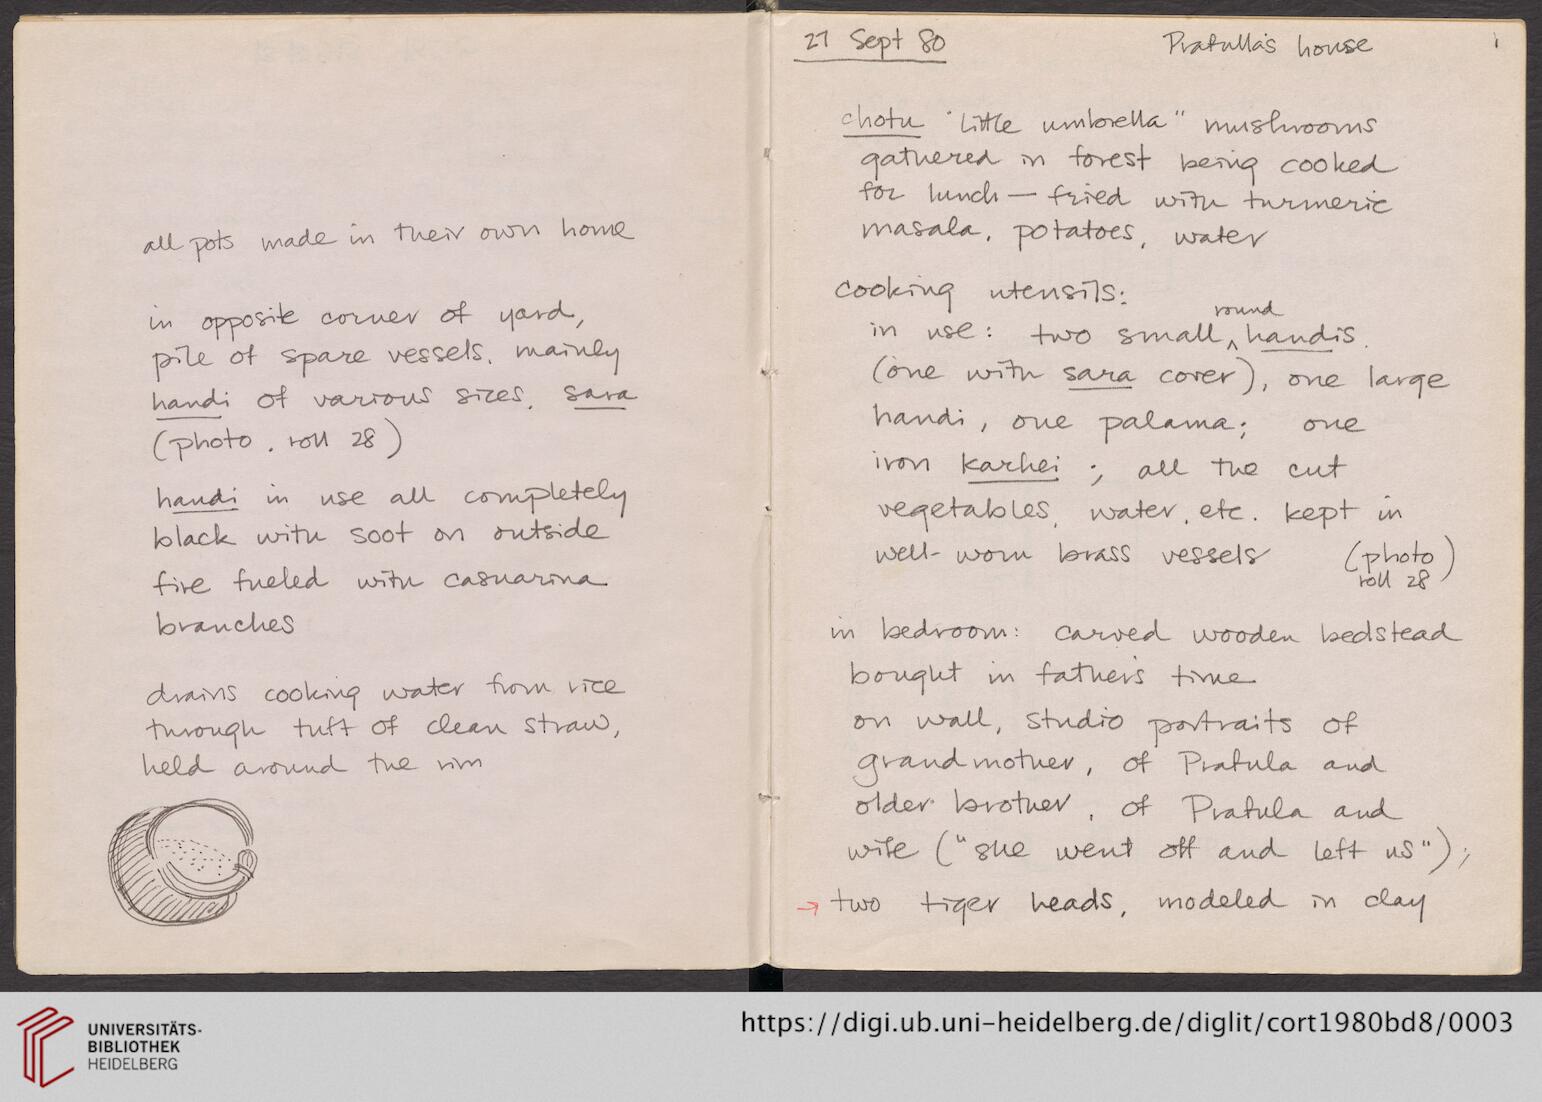 all pots made in their own home
in opposite corner of yard,
pile of spare vessels, mainly
handi of various sizes, sara
(photo, roll 28)
handi in use all completely
black with soot on outside
fire fueled with casuarina
branches
drains cooking water from rice
through tuft of clean straw,
held around the rim
27 Sept 80 Prafulla's house 1
chotu "little umbrella" mushrooms
gathered in forest being cooked
for lunch — fried with turmeric
masala, potatoes, water
cooking utensils:
round
in use: two small ^ handis.
(one with sara cover), one large
handi, one palama; one
iron karhei; all the cut
vegetables, water, etc. kept in
well-worn brass vessels (photo
roll 28)
in bedroom: carved wooden bedstead
bought in father's time
on wall, studio portraits of
grandmother, of Prafula and
older brother, of Prafula and
wife ("she went off and left us");
→ two tiger heads, modeled in clay
UNIVERSITÄTS-
BIBLIOTHEK
HEIDELBERG
https://digi.ub.uni-heidelberg.de/diglit/cort1980bd8/0003